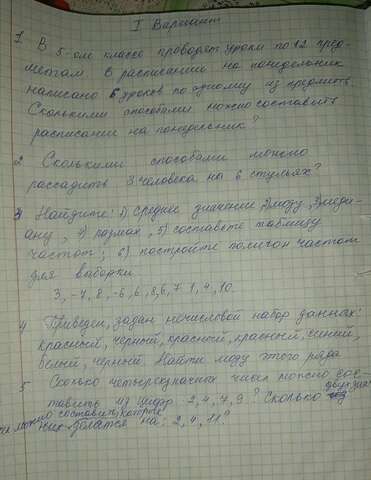 I Вариант
1 В 5-ом классе проводят уроки по 12 пред-
метам В расписании на понедельник
написано 6 уроков по одному из предмета.
Сколькими способами можно составить
расписание на понедельник?
2 Сколькими способами можно
рассадить 3 человека на 6 стульях?
3 Найдите: 1) Среднее значение, 2) моду, 3) меди-
ану, 4) размах, 5) составьте таблицу
частот; 6) постройте полигон частот
для выборки
3, -7, 8, -6, 6, 8, 6, 7 1, 4, 10
4 Приведен, задан нечисловой набор данных:
красный, черный, красный, красный, синий,
белый, черный. Найти моду этого ряда
5 Сколько четырехзначных чисел можно сос-
тавить из цифр 2, 4, 7, 9? Сколько
них делятся на: 2, 4, 11?